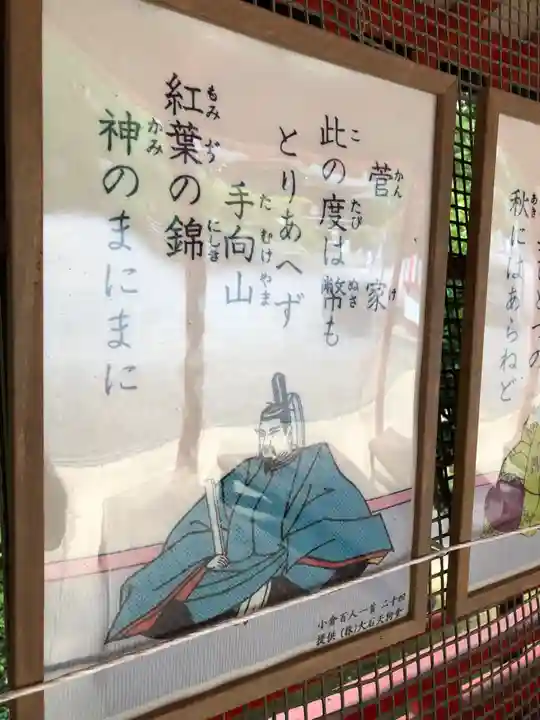 菅家
かんけ
此の度は幣も
こ たび ぬさ
とりあへず
手向山
た むけ やま
紅葉の錦
もみぢ にしき
神のまにまに
かみ
小倉百人一首 二十四
提供 (株)大石天狗堂
秋にはあらねど
あき